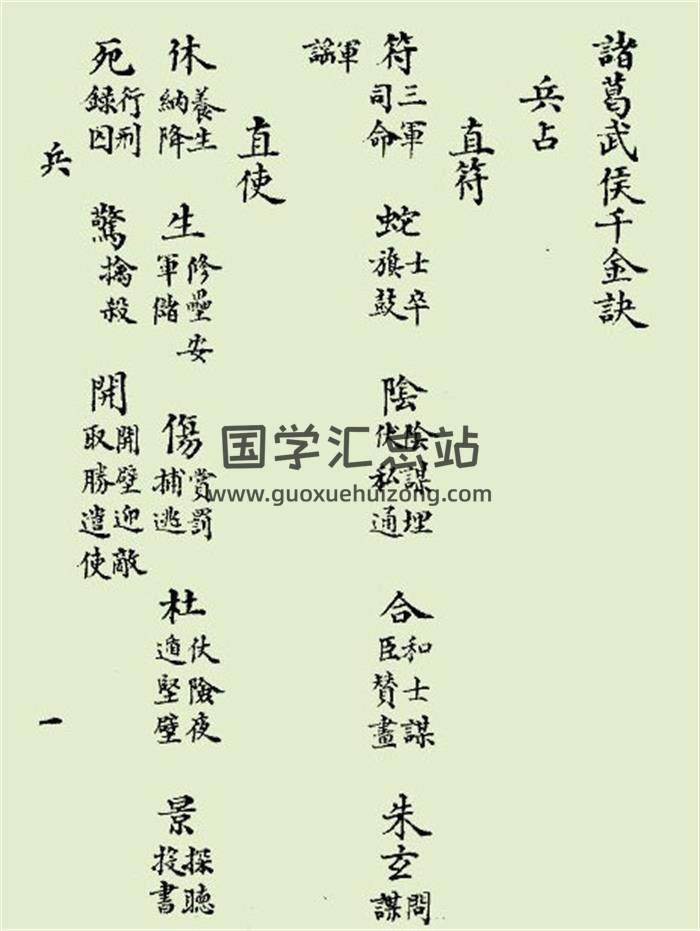 諸葛武侯千金訣
兵占
直符
符 三軍司命 蛇 士卒旗鼓 陰 陰謀埋伏私通 合 和士謀臣贊畫 朱玄 問謀
軍謡
直使
休 養生納降 生 修壘安軍儲 傷 賞罰捕逃 杜 仗險夜遁堅壁 景 探聽投書
死 行刑録囚 驚 擒殺 開 開壁迎敵取勝遣使
兵 一
国学汇总站
www.guoxuehuizong.com